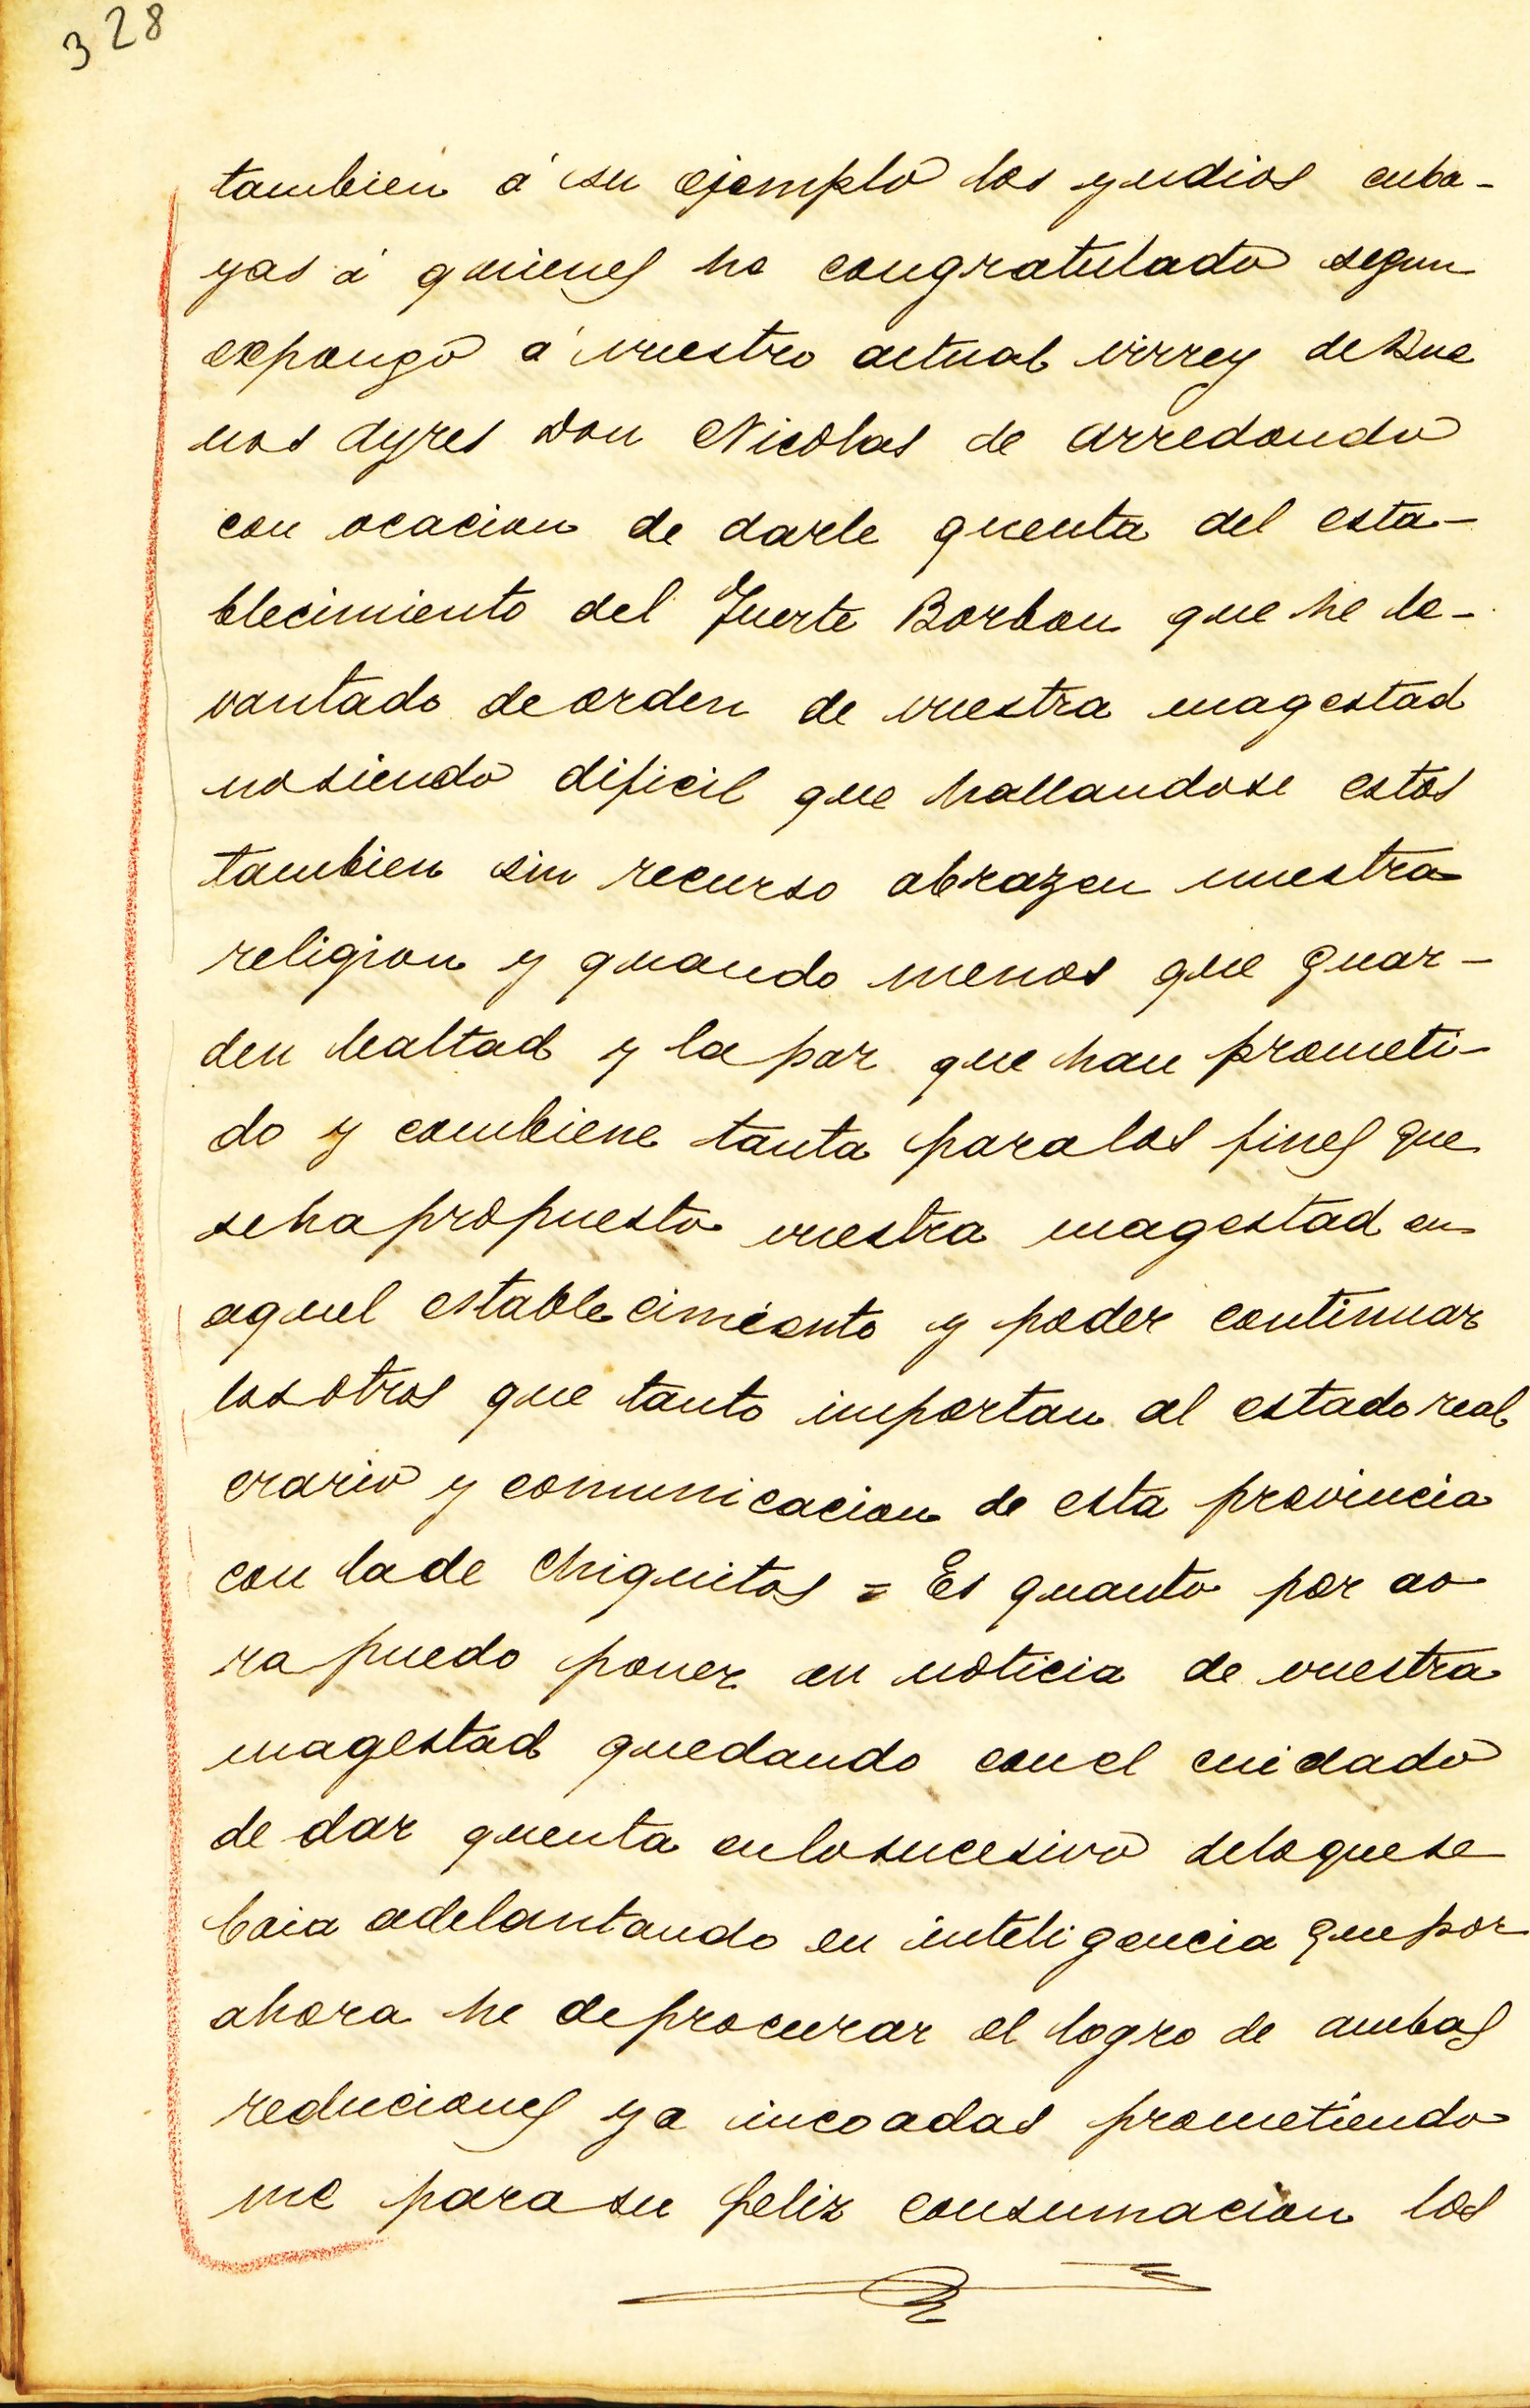 328
tambien á su ejemplo los yndios enba-
yas á quienes he congratulado segun
expongo á vuestro actual virrey de Bue
nos Ayres Don Nicolas de Arredondo
con ocacion de darle quenta del esta-
blecimiento del Fuerte Borbon que he le-
vantado de orden de vuestra magestad
no siendo dificil que hallandose estos
tambien sin recurso abrazen nuestra
religion y quando menos que guar-
den lealtad y la paz que han prometi-
do y combiene tanta para los fines que
se ha propuesto vuestra magestad en
aquel establecimiento y poder continuar
los otros que tanto importan al estado real
erario y comunicacion de esta provincia
con la de Chiquitos = Es quanto por ao
ra puedo poner en noticia de vuestra
magestad quedando con el cuidado
de dar quenta en lo sucesivo de lo que se
baia adelantando en inteligencia que por
ahora he de procurar el logro de ambas
reduciones ya incoadas prometiendo
me para su feliz consumacion los